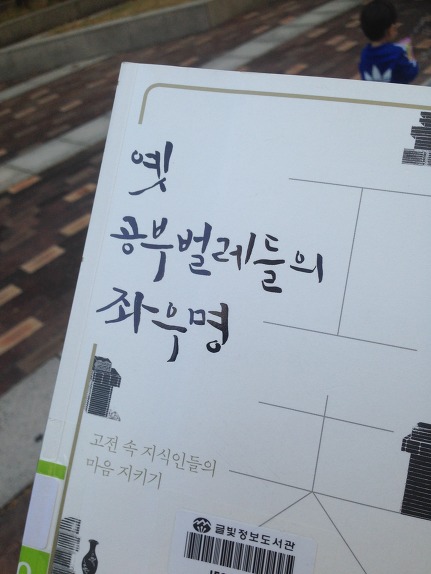 옛
공부벌레들의
좌우명
고전 속 지식인들의
마음 지키기
글빛정보도서관